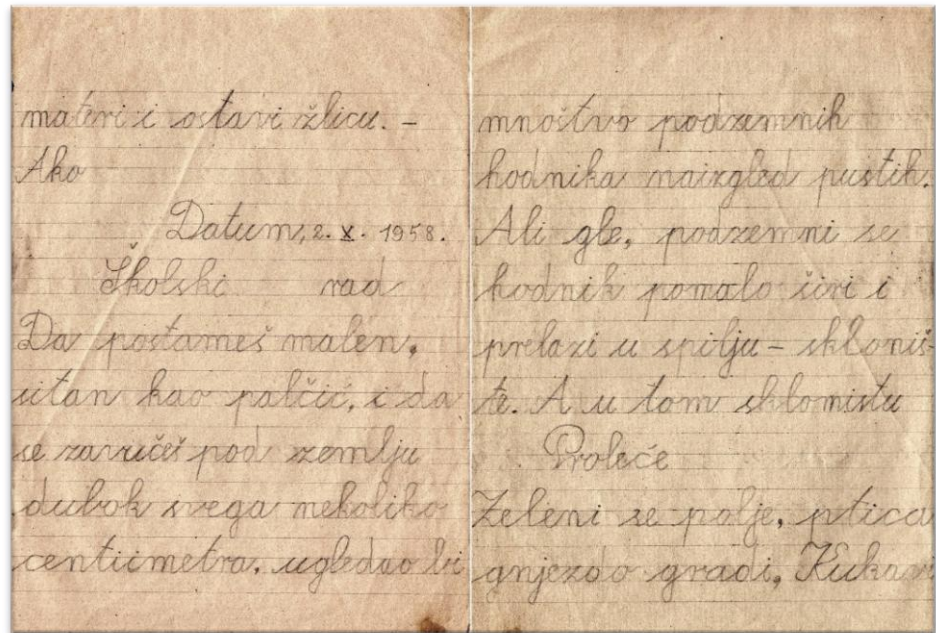 materi i ostavi žlicu. -
Ako
Datum, 2. X. 1958.
Školski rad
Da postameš malen,
sitan kao palčić, i da
se zavučeš pod zemlju
dubok svega nekoliko
centimetra. ugledao bi
mnoštvo podzemnih
hodnika naizgled pustih.
Ali gle, podzemni se
hodnik pomalo širi i
prelazi u spilju - skloniš-
te. A u tom skloništu
Proleće
Zeleni se polje, ptica
gnjezdo gradi, Kukavi